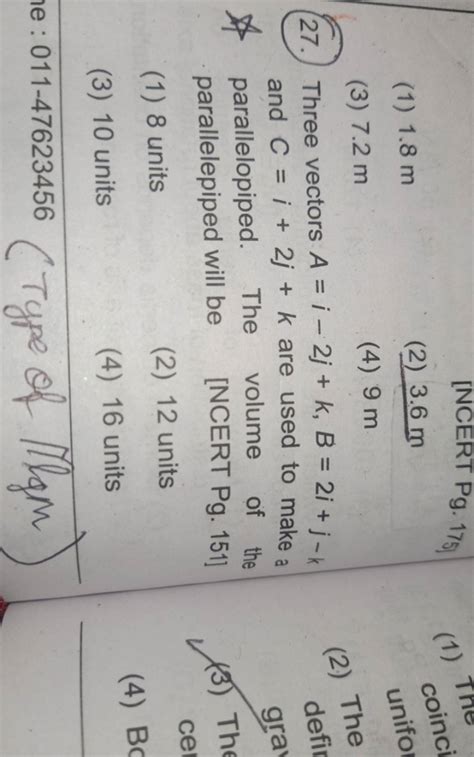 [NCERT Pg. 175]
(1) 1.8 m (2) 3.6 m
(3) 7.2 m (4) 9 m
27. Three vectors A = i – 2j + k, B = 2i + j – k
and C = i + 2j + k are used to make a
parallelopiped. The volume of the
parallelepiped will be [NCERT Pg. 151]
(1) 8 units (2) 12 units
(3) 10 units (4) 16 units
ne : 011-47623456 (Type of
(1) The
coinci
unifo
(2) The
defin
grav
(3) The
cen
(4) Bo